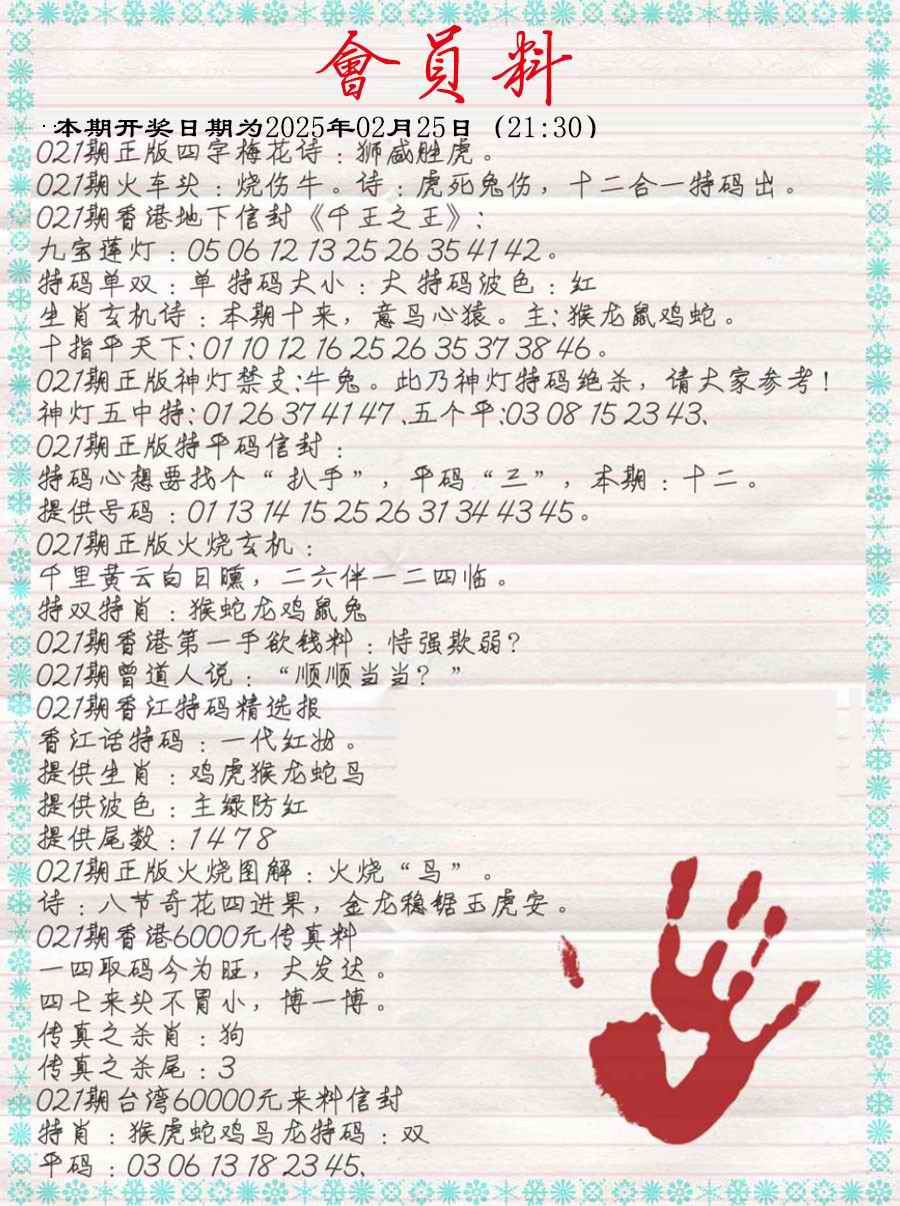 會員料
本期开奖日期为2025年02月25日（21:30）
021期正版四字梅花诗：狮威胜虎。
021期火车头：烧伤牛。诗：虎死兔伤，十二合一特码出。
021期香港地下信封《千王之王》：
九宝莲灯：05 06 12 13 25 26 35 41 42。
特码单双：单 特码大小：大 特码波色：红
生肖玄机诗：本期十来，意鸟心猿。主：猴龙鼠鸡蛇。
十指平天下：01 10 12 16 25 26 35 37 38 46。
021期正版神灯禁支：牛兔。此乃神灯特码绝杀，请大家参考！
神灯五中特：01 26 37 41 47、五个平：03 08 15 23 43、
021期正版特平码信封：
特码心想要找个“扒手”，平码“三”，本期：十二。
提供号码：01 13 14 15 25 26 31 34 43 45。
021期正版火烧玄机：
千里黄云白日曛，二六伴一二四临。
特双特肖：猴蛇龙鸡鼠兔
021期香港第一手欲钱料：恃强欺弱？
021期曾道人说：“顺顺当当？”
021期香江特码精选报
香江话特码：一代红妆。
提供生肖：鸡虎猴龙蛇鸟
提供波色：主绿防红
提供尾数：1 4 7 8
021期正版火烧图解：火烧“鸟”。
诗：八节奇花四进果，金龙稳锯玉虎安。
021期香港6000元传真料
一四取码今为旺，大发达。
四七来头不冒小，博一博。
传真之杀肖：狗
传真之杀尾：3
021期台湾60000元来料信封
特肖：猴虎蛇鸡鸟龙特码：双
平码：03 06 13 18 23 45、